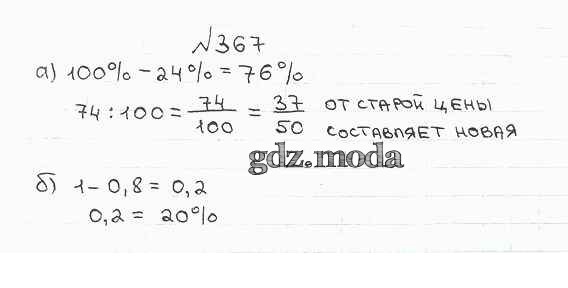 №367
а) 100% - 24% = 76%
74 : 100 = 74/100 = 37/50 от старой цены
составляет новая
gdz.moda
б) 1 - 0,8 = 0,2
0,2 = 20%